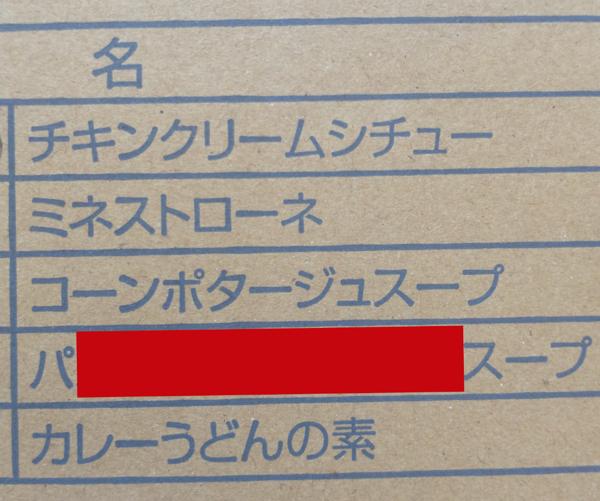 名
チキンクリームシチュー
ミネストローネ
コーンポタージュスープ
パ スープ
カレーうどんの素